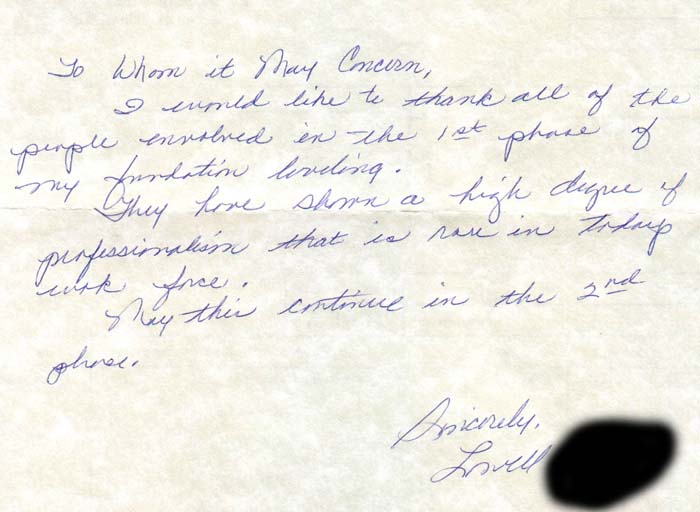 To Whom it May Concern,
I would like to thank all of the
people envolved in the 1st phase of
my fundation leveling.
They have shown a high degree of
professionalism that is rare in todays
work force.
May this continue in the 2nd
phase.
Sincerely,
Lowell